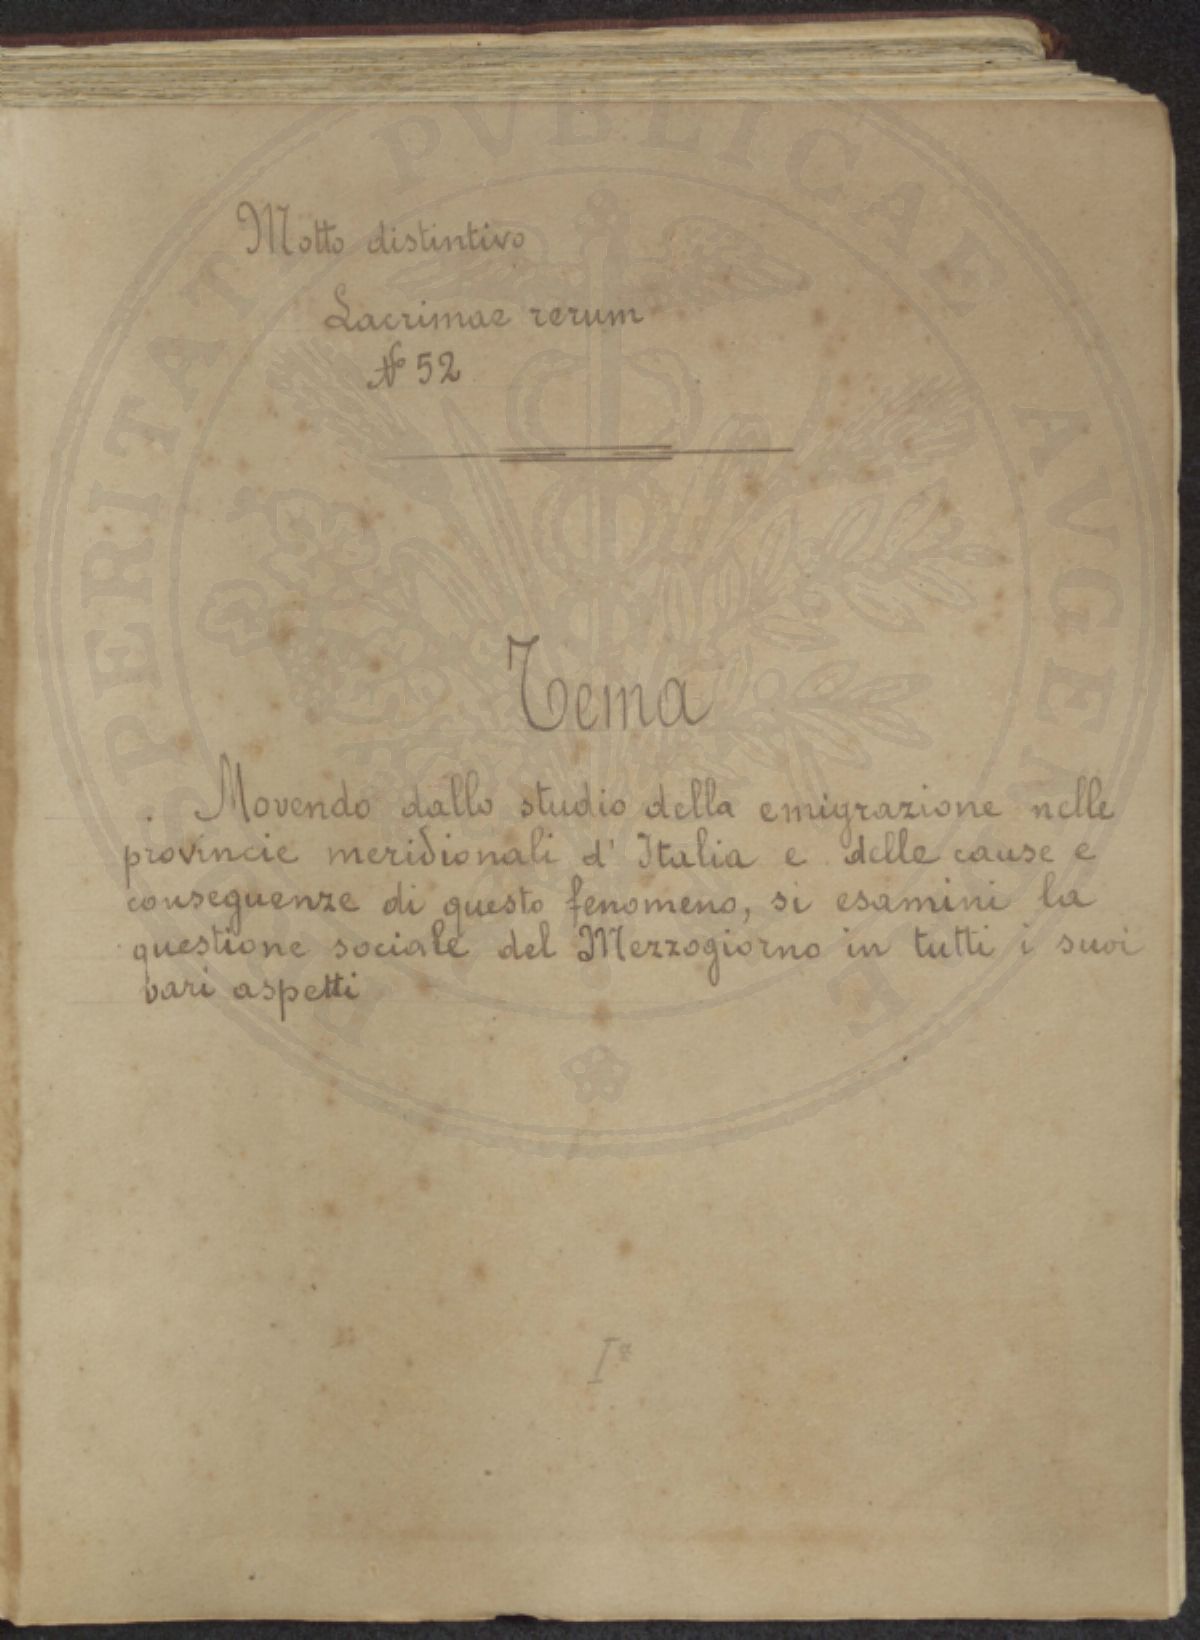 Motto distintivo
Lacrimae rerum
N° 52
Tema
Movendo dallo studio della emigrazione nelle
provincie meridionali d' Italia e delle cause e
conseguenze di questo fenomeno, si esamini la
questione sociale del Mezzogiorno in tutti i suoi
vari aspetti
PROSPERITATI PVBLICAE AVGENDAE